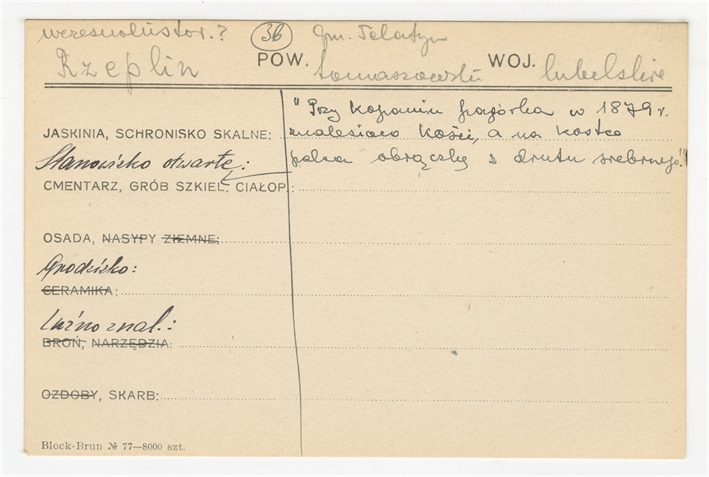 wczesnohistor.? (36) gm. Telatyn
Rzeplin POW. tomaszowski WOJ. lubelskie
"Przy kopaniu pagórka w 1879 r.
JASKINIA, SCHRONISKO SKALNE: znalesiono kości, a na kostce
Stanowisko otwarte: palca obrączkę z drutu srebrnego."
CMENTARZ, GRÓB SZKIEL. CIAŁOP.:
OSADA, NASYPY ZIEMNE:
Grodzisko:
CERAMIKA:
Luźno znal.:
BROŃ, NARZĘDZIA:
OZDOBY, SKARB:
Block-Brun № 77—8000 szt.